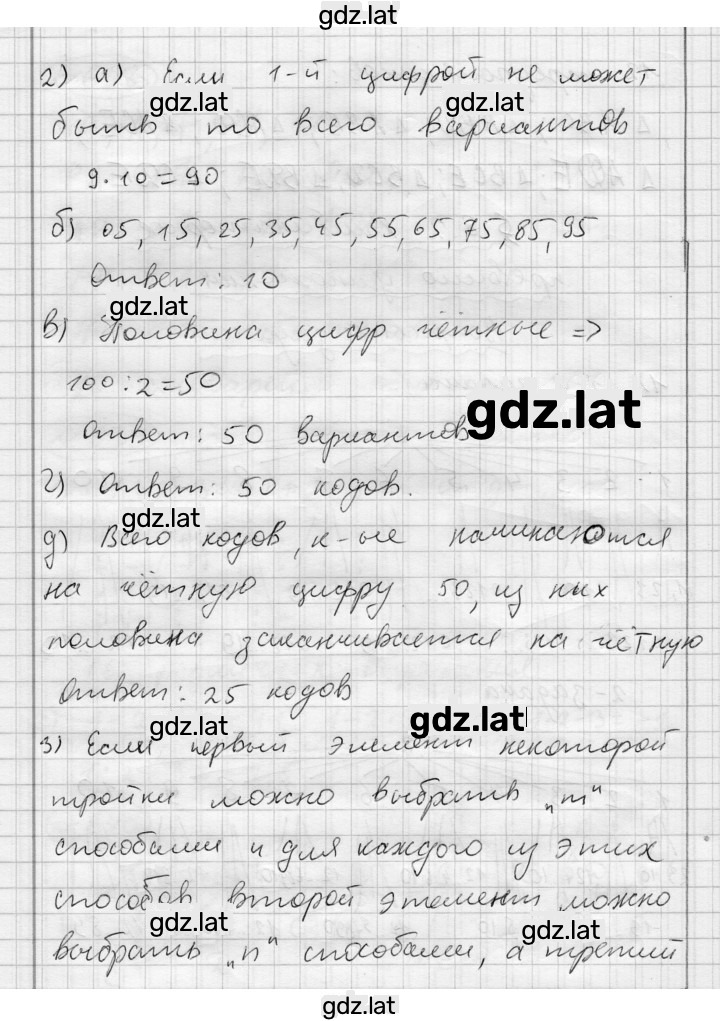 gdz.lat
2) а) Если 1-й цифрой не может
gdz.lat gdz.lat
быть то всего вариантов
9·10=90
б) 05, 15, 25, 35, 45, 55, 65, 75, 85, 95
Ответ: 10
gdz.lat
в) Половина цифр чётные =>
100:2=50
gdz.lat
Ответ: 50 вариантов
г) Ответ: 50 кодов.
gdz.lat
д) Всего кодов, к-ые начинаются
на чётную цифру 50, из них
половина заканчивается на чётную
Ответ: 25 кодов
gdz.lat gdz.lat
3) Если первый элемент некоторой
тройки можно выбрать „m"
способами и для каждого из этих
способов второй элемент можно
gdz.lat gdz.lat
выбрать „n" способами, а третий
gdz.lat